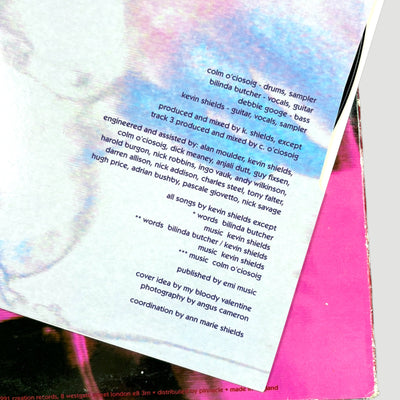 colm o'ciosoig - drums, sampler
bilinda butcher - vocals, guitar
debbie googe - bass
kevin shields - guitar, vocals, sampler
produced and mixed by k. shields, except
track 3 produced and mixed by c. o'ciosoig
engineered and assisted by: alan moulder, kevin shields,
colm o'ciosoig, dick meaney, anjali dutt, guy fixsen,
harold burgon, nick robbins, ingo vauk, andy wilkinson,
darren allison, nick addison, charles steel, tony falter,
hugh price, adrian bushby, pascale giovetto, nick savage
all songs by kevin shields except
* words bilinda butcher
music kevin shields
** words bilinda butcher / kevin shields
music kevin shields
*** music colm o'ciosoig
published by emi music
cover idea by my bloody valentine
photography by angus cameron
coordination by ann marie shields
991 creation records, 8 westgate street london e8 3rn • distributed by pinnacle • made in england